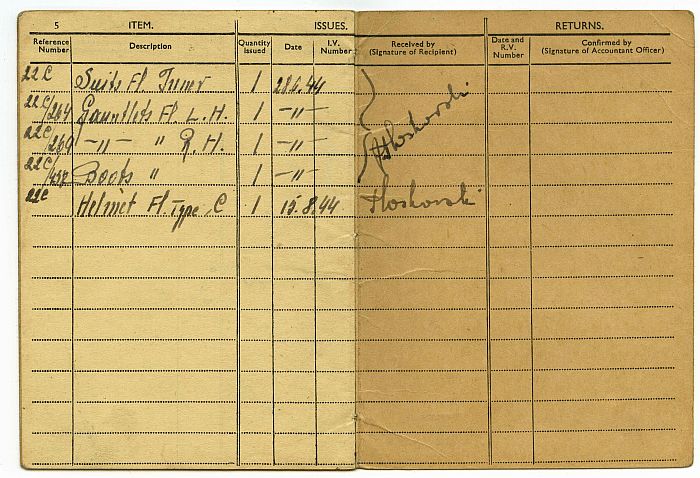 5 ITEM. ISSUES. RETURNS.
Reference Number Description Quantity Issued Date I.V. Number Received by (Signature of Recipient) Date and R.V. Number Confirmed by (Signature of Accountant Officer)
22C Suits Fl. Inner 1 28.6.44
22C/264 Gauntlets Fl. L.H. 1 –〃–
22C/269 –〃– 〃 R.H. 1 –〃–
22C/ Boots 〃 1 –〃–
22C Helmet Fl. Type C 1 15.8.44